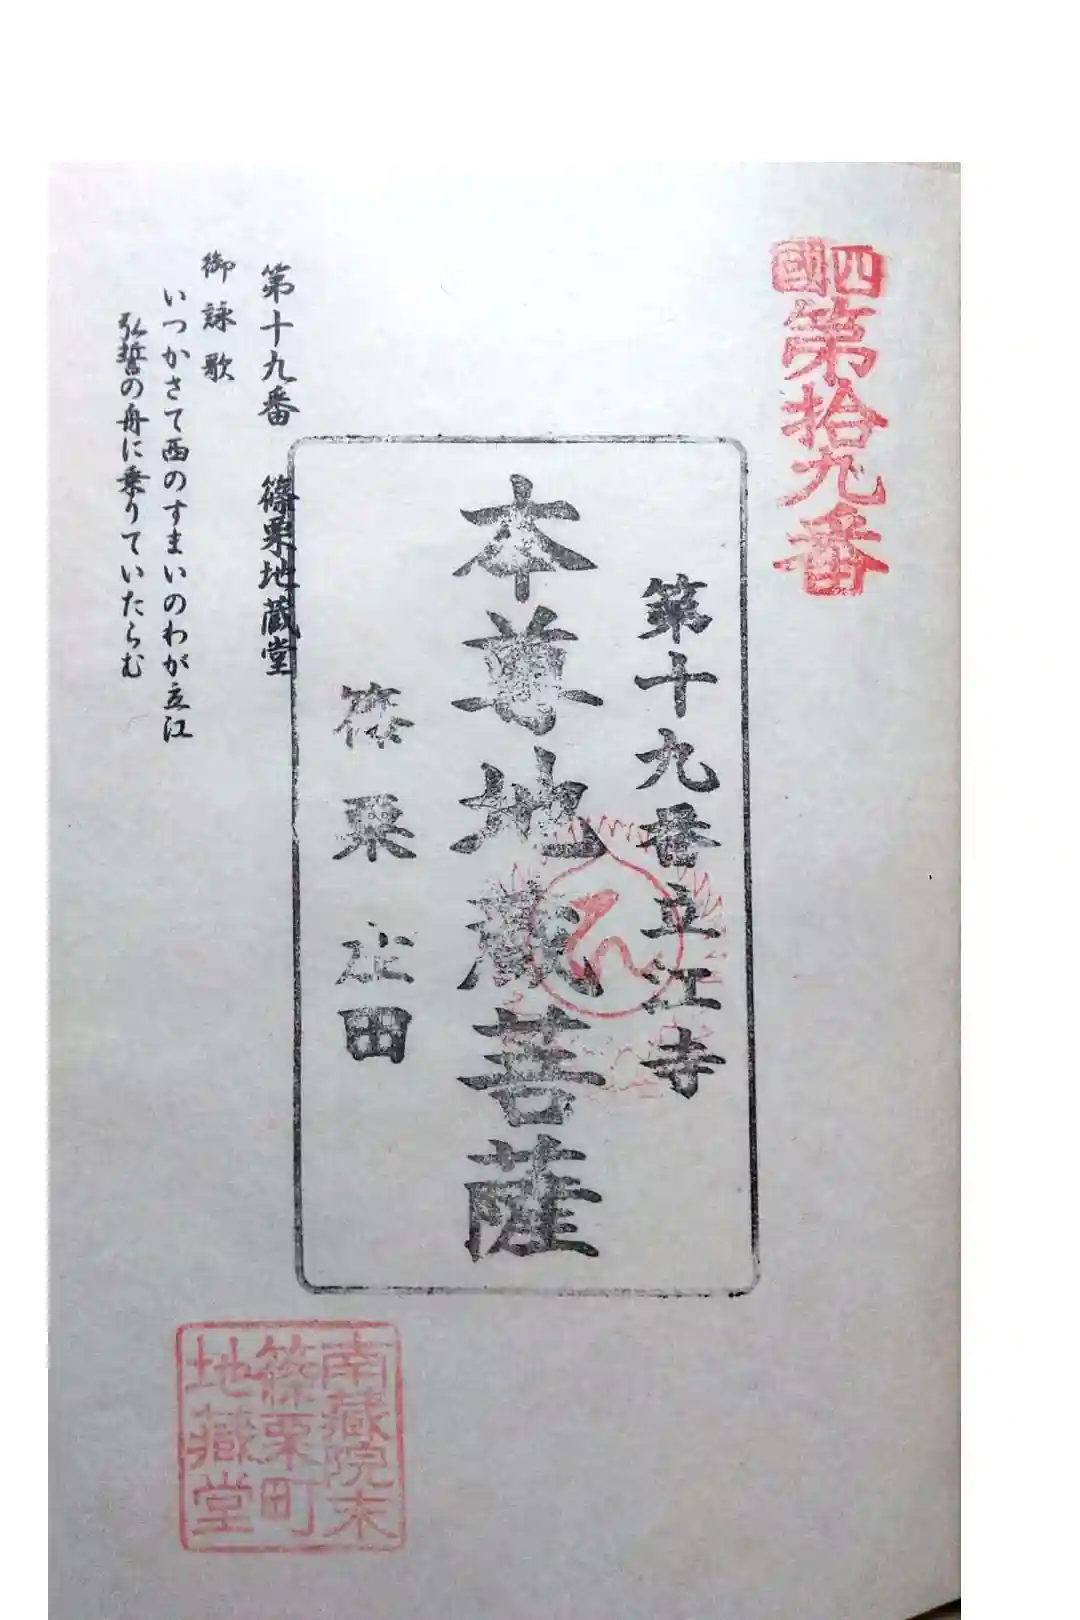 四國
第拾九番
第十九番立江寺
本尊地蔵菩薩
篠栗 田
第十九番 篠栗地蔵堂
御詠歌
いつかさて西のすまいのわが立江
弘誓の舟に乗りていたらむ
南蔵院末
篠栗町
地蔵堂